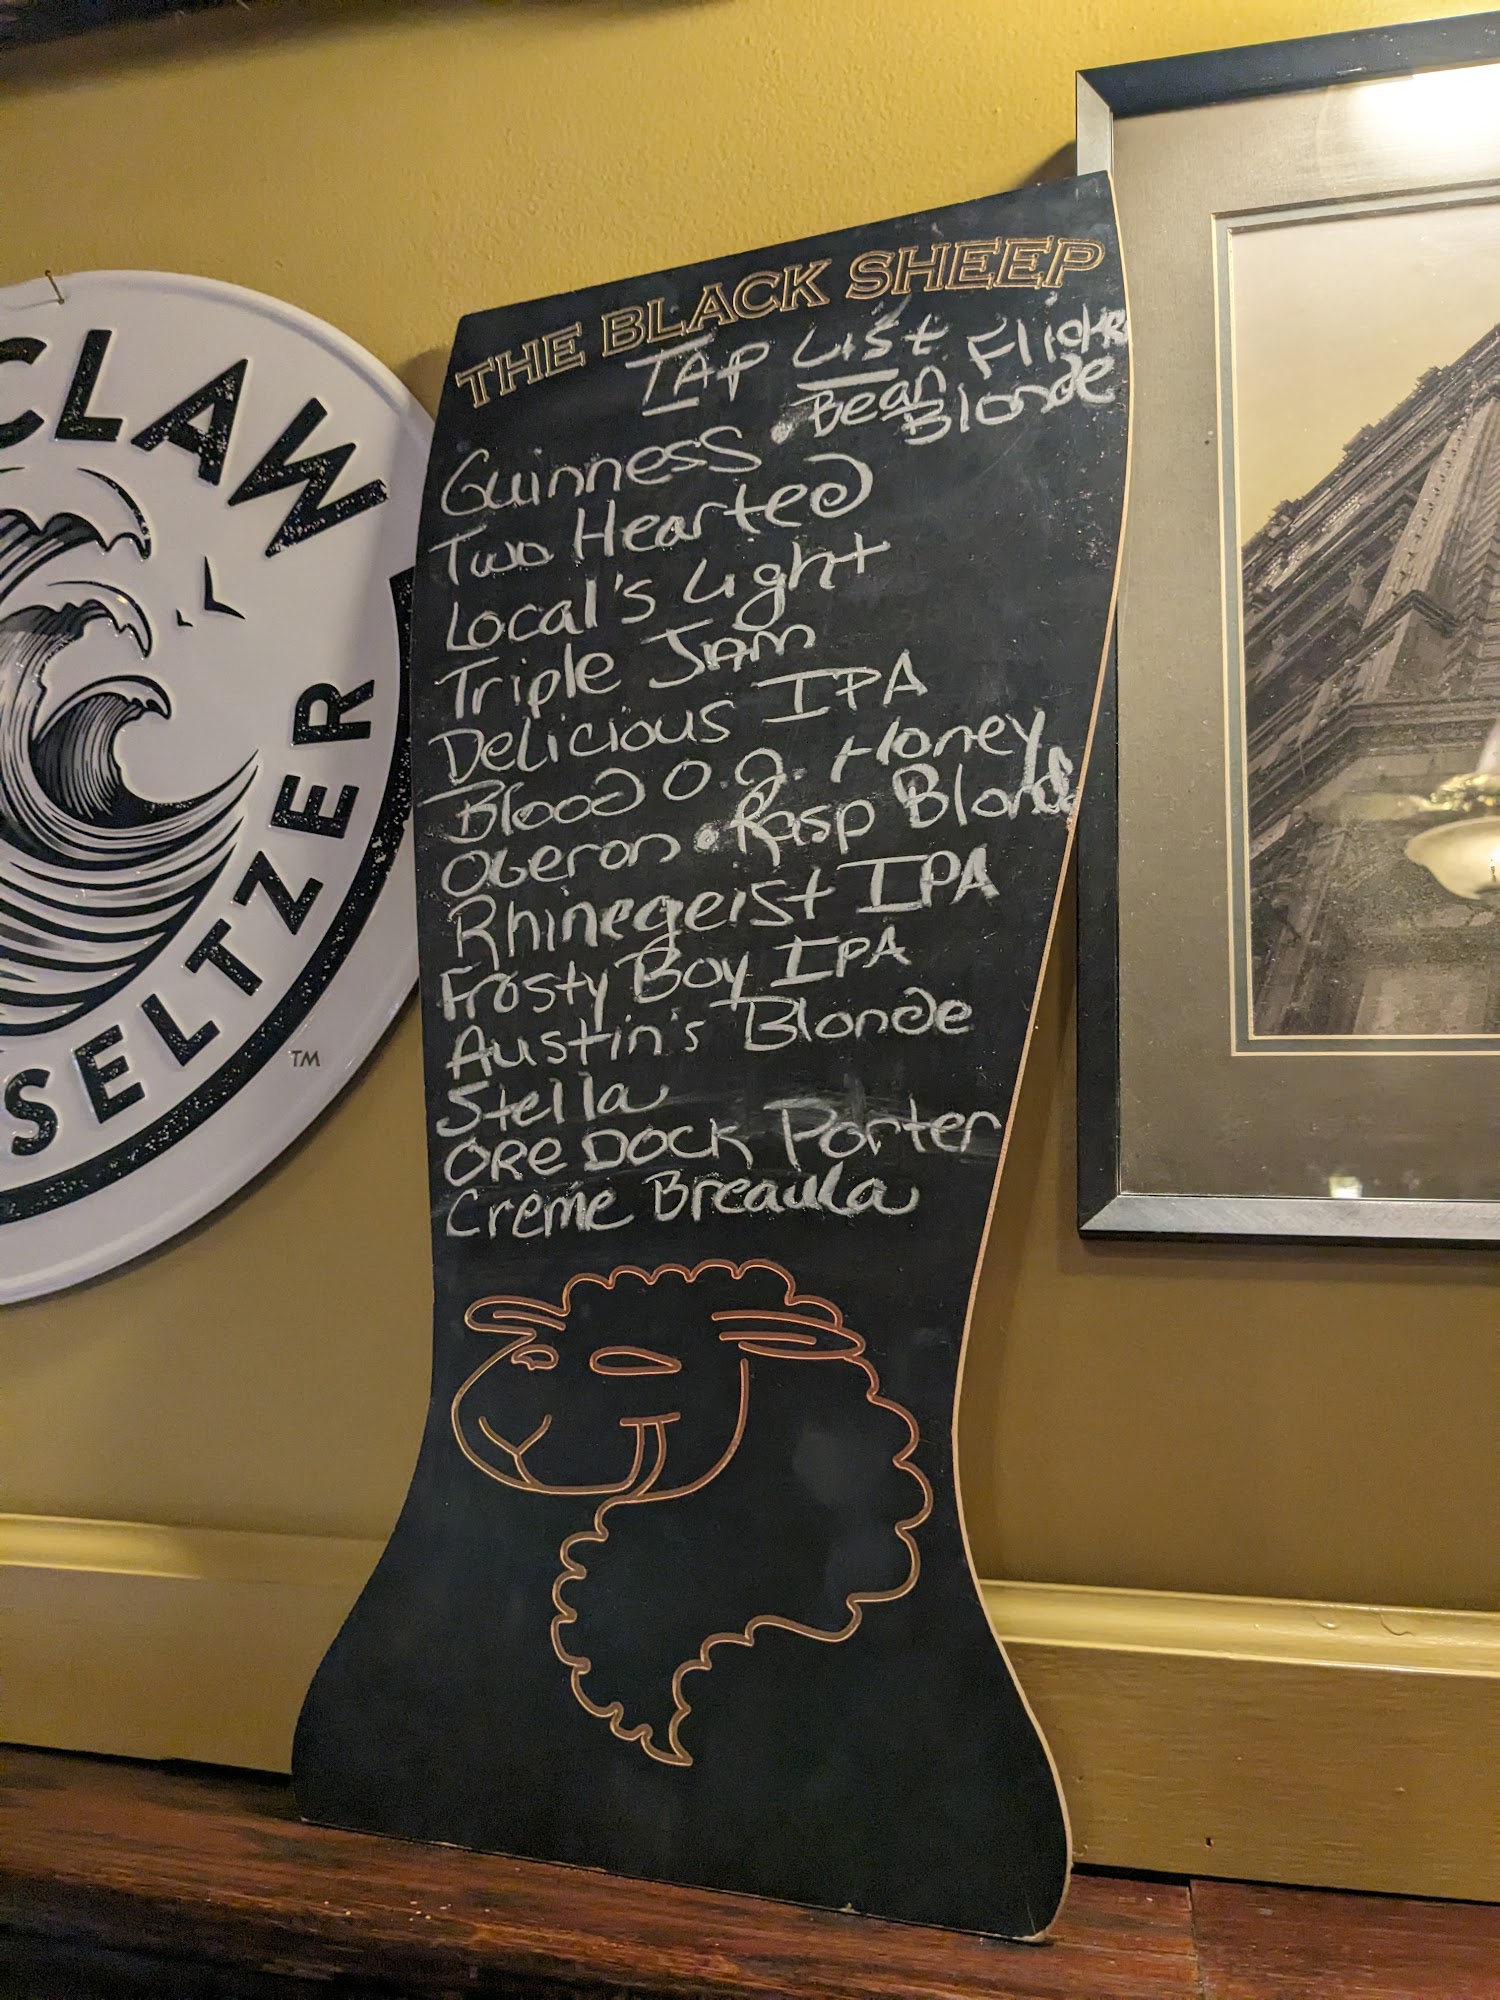 CLAW
SELTZER
TM
THE BLACK SHEEP
TAP LIST
Guinness • Bean Flicker
Blonde
Two Hearted
Local's Light
Triple Jam
Delicious IPA
Blood O.g. Honey
Oberon • Rasp Blonde
Rhinegeist IPA
Frosty Boy IPA
Austin's Blonde
Stella
Ore Dock Porter
Creme Breaula